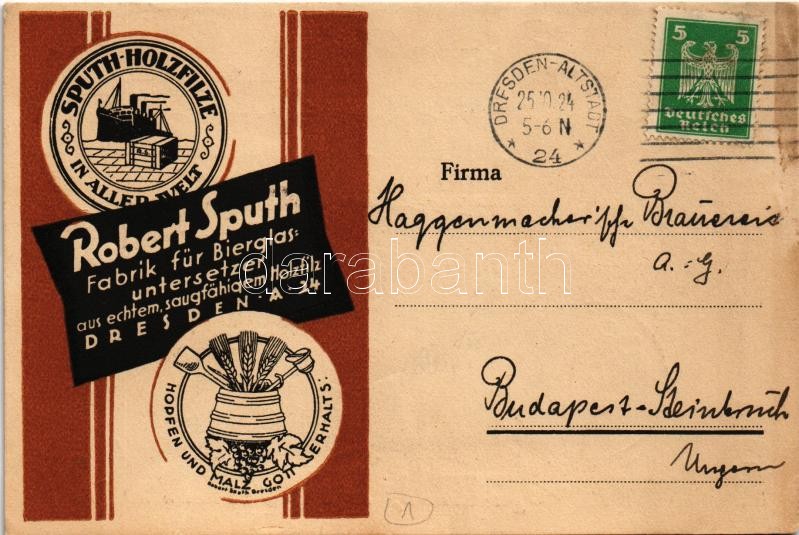 SPUTH-HOLZFILZE
IN ALLER WELT
Robert Sputh
Fabrik für Bierglas=
untersetzer
aus echtem, saugfähigem Holzfilz
DRESDEN-A 24
HOPFEN UND MALZ GOTT ERHALTS!
Robert Sputh Dresden
DRESDEN-ALTSTADT
25.10.24
5-6 N
* 24 *
5 5
Deutsches
Reich
Firma
Haggenmacher'sche Brauerei
A.-G.
Budapest-Steinbruch
Ungarn
1
darabanth